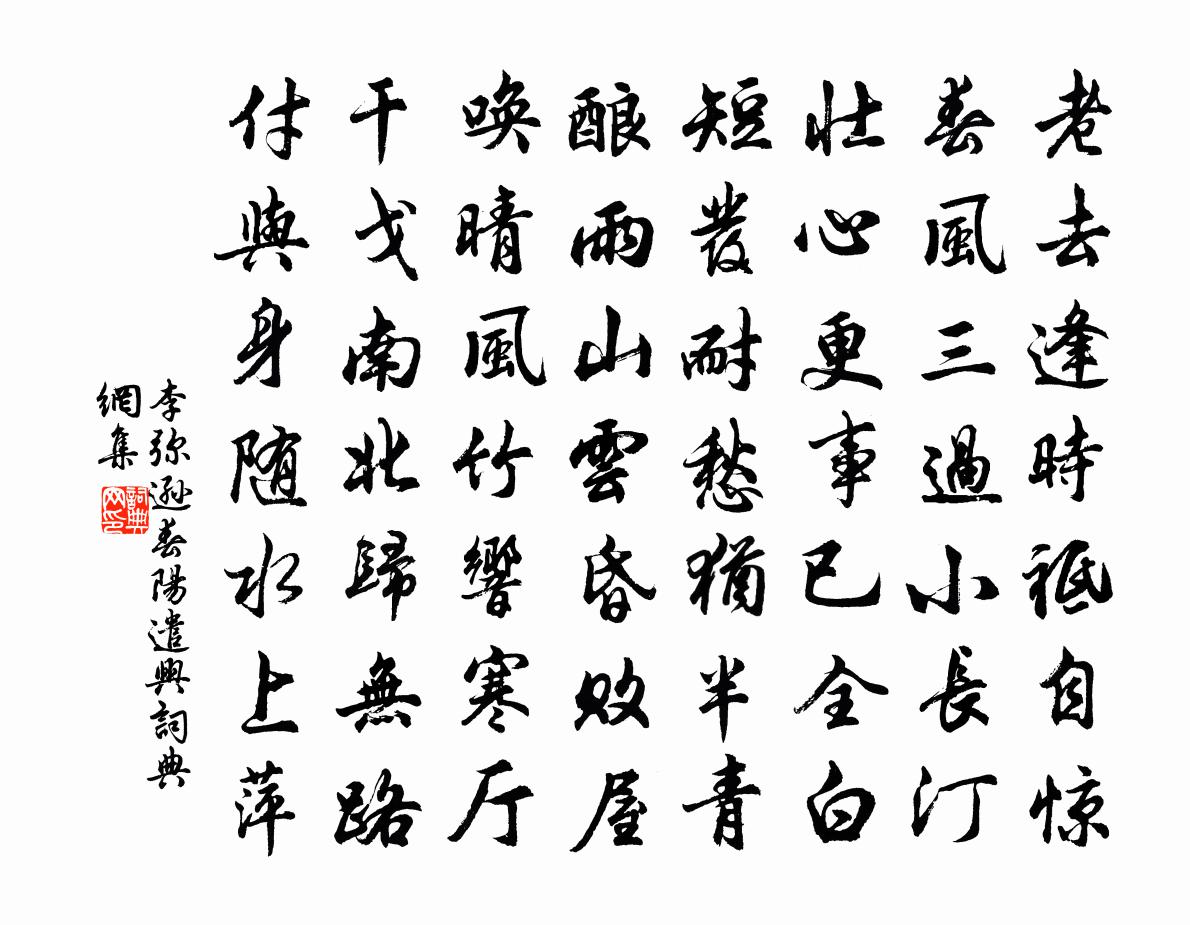 老去逢時祗自惊
春風三過小長汀
壯心更事已全白
短發耐愁猶半青
酿雨山雲昏败屋
喚晴風竹響寒厅
干戈南北歸無路
付與身随水上萍
李弥遜春陽遣興詞典
網集
詞典
网印